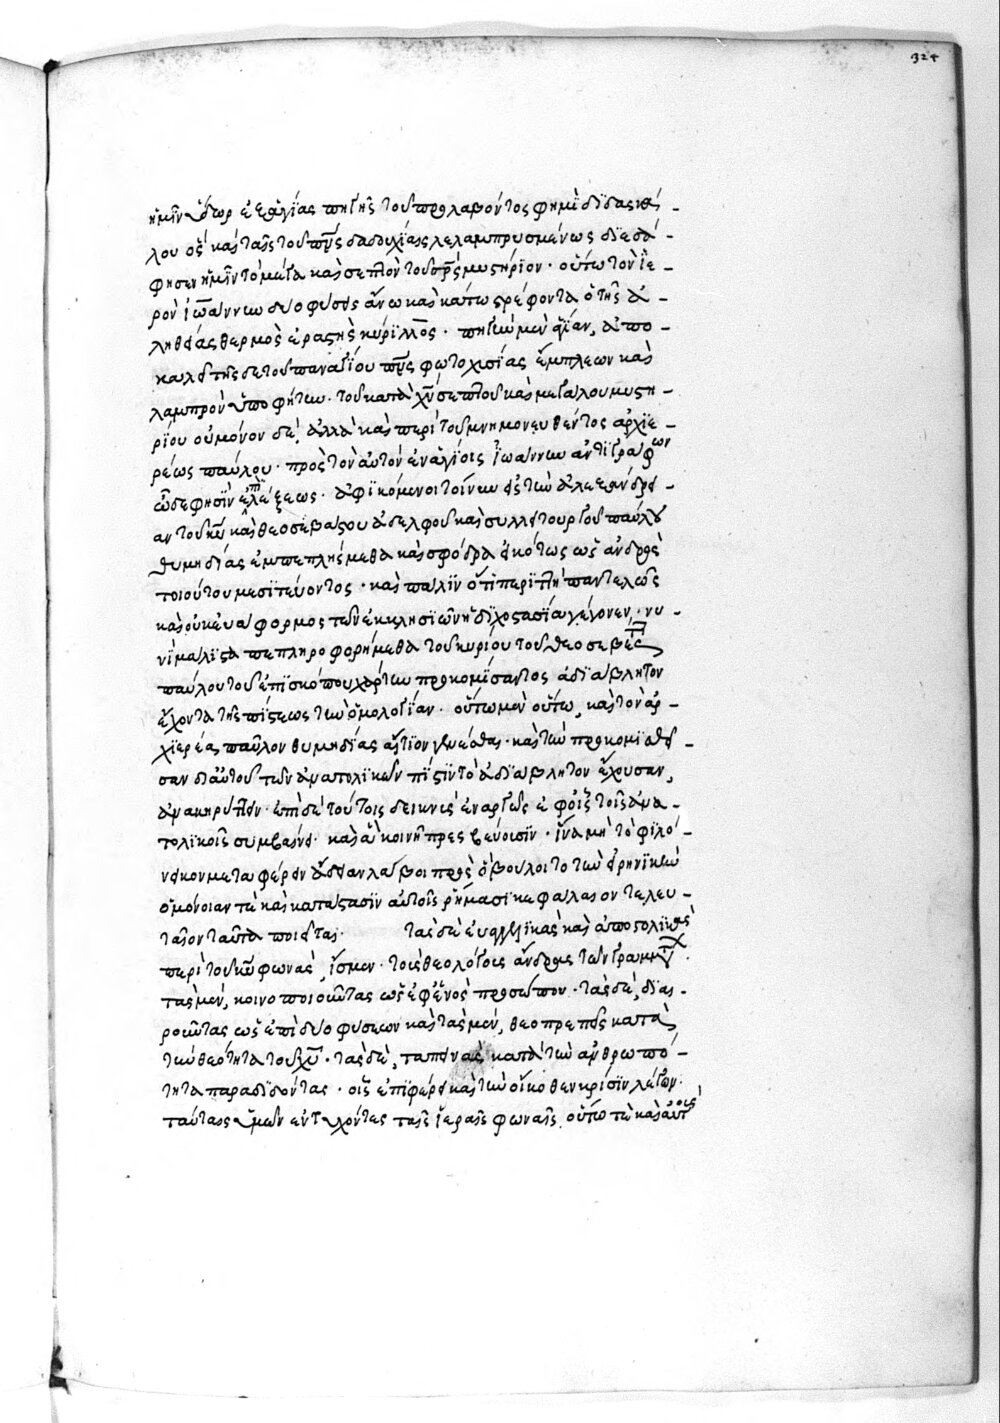 324
ἡμῖν ὕδωρ ἐξ ἁγίας πηγῆς τοῦ προλαβόντος φημὶ διδασκά-
λου ὃς καὶ ταῖς τοῦ πνς δαδουχίαις λελαμπρυσμένως διεσά-
φησεν ἡμῖν τὸ μέγα καὶ σεπτὸν τοῦ πρς μυστήριον· οὕτω τὸν ἱε-
ρὸν ἰωάννην δύο φύσεις ἄνω καὶ κάτω στρέφοντα ὁ τῆς ἀ-
ληθείας θερμὸς ἐραστὴς κύριλλος· πηγὴν μὲν ἁγίαν, ἀπο-
καλεῖ τῆς δὲ τοῦ παναγίου πνς φωτοχυσίας ἔμπλεων καὶ
λαμπρὸν ὑποφήτην· τοῦ κατὰ χν σεπτοῦ καὶ μεγάλου μυστη
ρίου οὐ μόνον δέ, ἀλλὰ καὶ περὶ τοῦ μνημονευθέντος ἀρχιε-
ρέως παύλου· πρὸς τὸν αὐτὸν ἐναγίοις ἰωάννην ἀντιγράφων
ὧδε φησὶν ἐπὶ λέξεως· ἀφικόμενοι τοίνυν εἰς τὴν ἀλεξανδρεί
αν τοῦ κυ καὶ θεοσεβεστάτου ἀδελφοῦ καὶ συλλειτουργοῦ παύλου
θυμηδίας ἐμπεπλήμεθα καὶ σφόδρα εἰκότως ὡς ἀνδρὸς
τοιούτου μεσιτεύοντος· καὶ πάλιν ὅτι περιττὴ παντελῶς
καὶ οὐκ εὐάφορμος τῶν ἐκκλησιῶν ἡ διχοστασία γέγονεν· νυ-
νὶ μάλιστα πεπληροφορήμεθα τοῦ κυρίου τοῦ θεοσεβεστ
παύλου τοῦ ἐπισκόπου χάρτην προκομίσαντος ἀδιάβλητον
ἔχοντα τῆς πίστεως τὴν ὁμολογίαν· οὕτω μὲν οὕτω, καὶ τὸν ἀρ-
χιερέα παῦλον θυμηδίας αἴτιον γενέσθαι· καὶ τὴν προκομισθεῖ-
σαν δι αὐτοῦ τῶν ἀνατολικῶν πίστιν τὸ ἀδιάβλητον ἔχουσαν,
ἀνακηρύττων· ἐπὶ δὲ τούτοις δείκνυσι ἐναργῶς ἐφ οἷς τοῖς ἀνα-
τολικοῖς συμβαίνει· καὶ ἃ κοινῇ πρεσβεύουσιν· ἵνα μὴ τὸ φιλό-
νεικον μεταφέρειν ἄδειαν λάβοι πρὸς ὃ βούλοιτο τὴν εἰρηνικὴν
ὁμόνοιαν τε καὶ κατάστασιν αὐτοῖς ῥήμασι κεφάλαιον τελευ-
ταῖον ταῦτα ποιεῖται· τὰς δὲ εὐαγγελικὰς καὶ ἀποστολικὰς
περὶ τοῦ κυ φωνάς, ἴσμεν· τοὺς θεολόγους ἄνδρας τῶν γραμμτ.
τὰς μέν, κοινοποιοῦντας ὡς ἐφ ἑνὸς προσώπου· τὰς δέ, διαι-
ροῦντας ὡς ἐπὶ δύο φύσεων καὶ τὰς μέν, θεοπρεπεῖς κατὰ
τὴν θεότητα τοῦ χυ· τὰς δέ, ταπεινὰς κατὰ τὴν ἀνθρωπό-
τητα παραδιδόντας· οἷς ἐπιφέρει καὶ τὴν οἴκοθεν κρίσιν λέγων·
ταύταις ὑμῶν ἐντυχόντες ταῖς ἱεραῖς φωναῖς, οὕτω τε καὶ αὐτοὺς